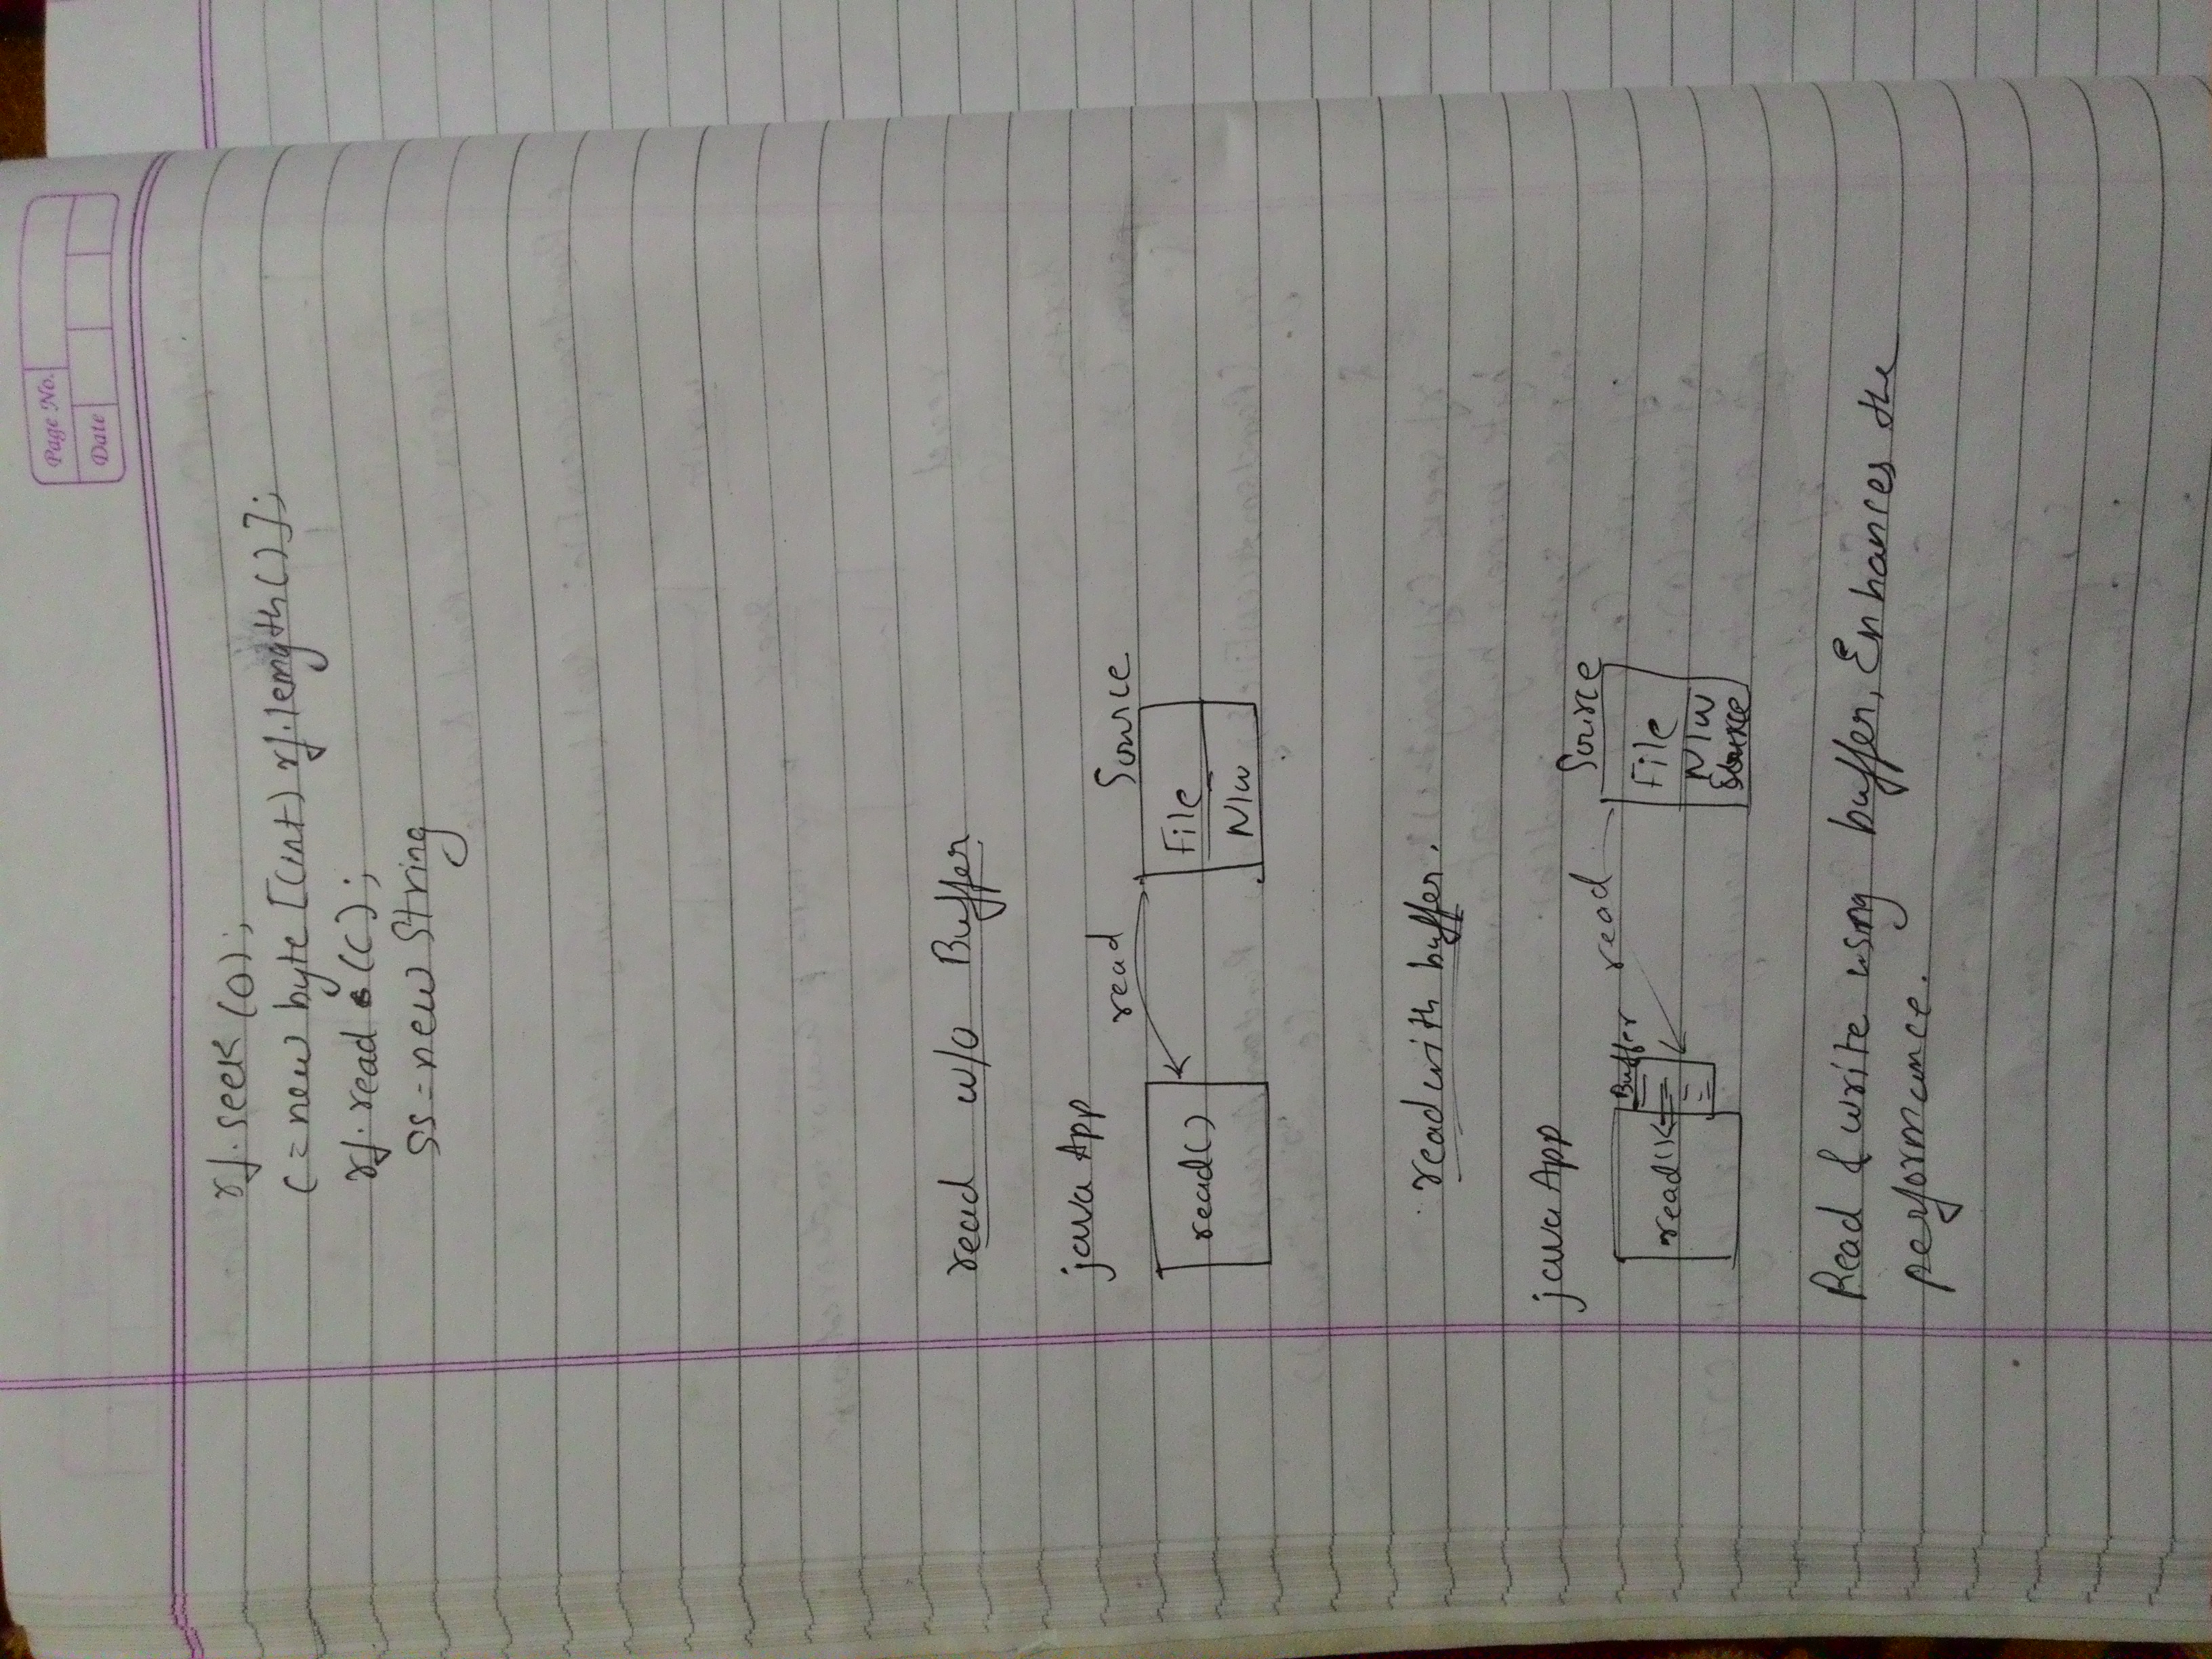 Page No.
Date
rf.seek(0);
c=new byte[(int) rf.length()];
rf.read (c);
ss=new String
read w/o Buffer
java App
read
Source
read()
File
N/w
read with buffer.
java App
Source
read
Buffer
read()
File
N/w
Source
Read & write using buffer, Enhances the
performance.